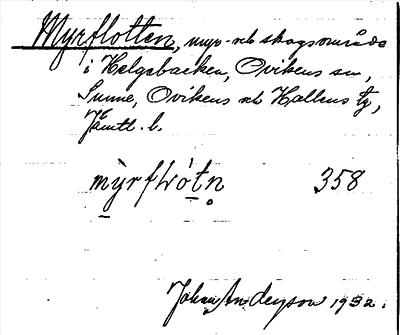 Myrflotten, myr- och skogsområde
i Helgebacken, Ovikens sn,
Sunne, Ovikens och Hallens tg,
Jämtl. l.
mỳrfló̀tn 358
Johan Anderson 1932.